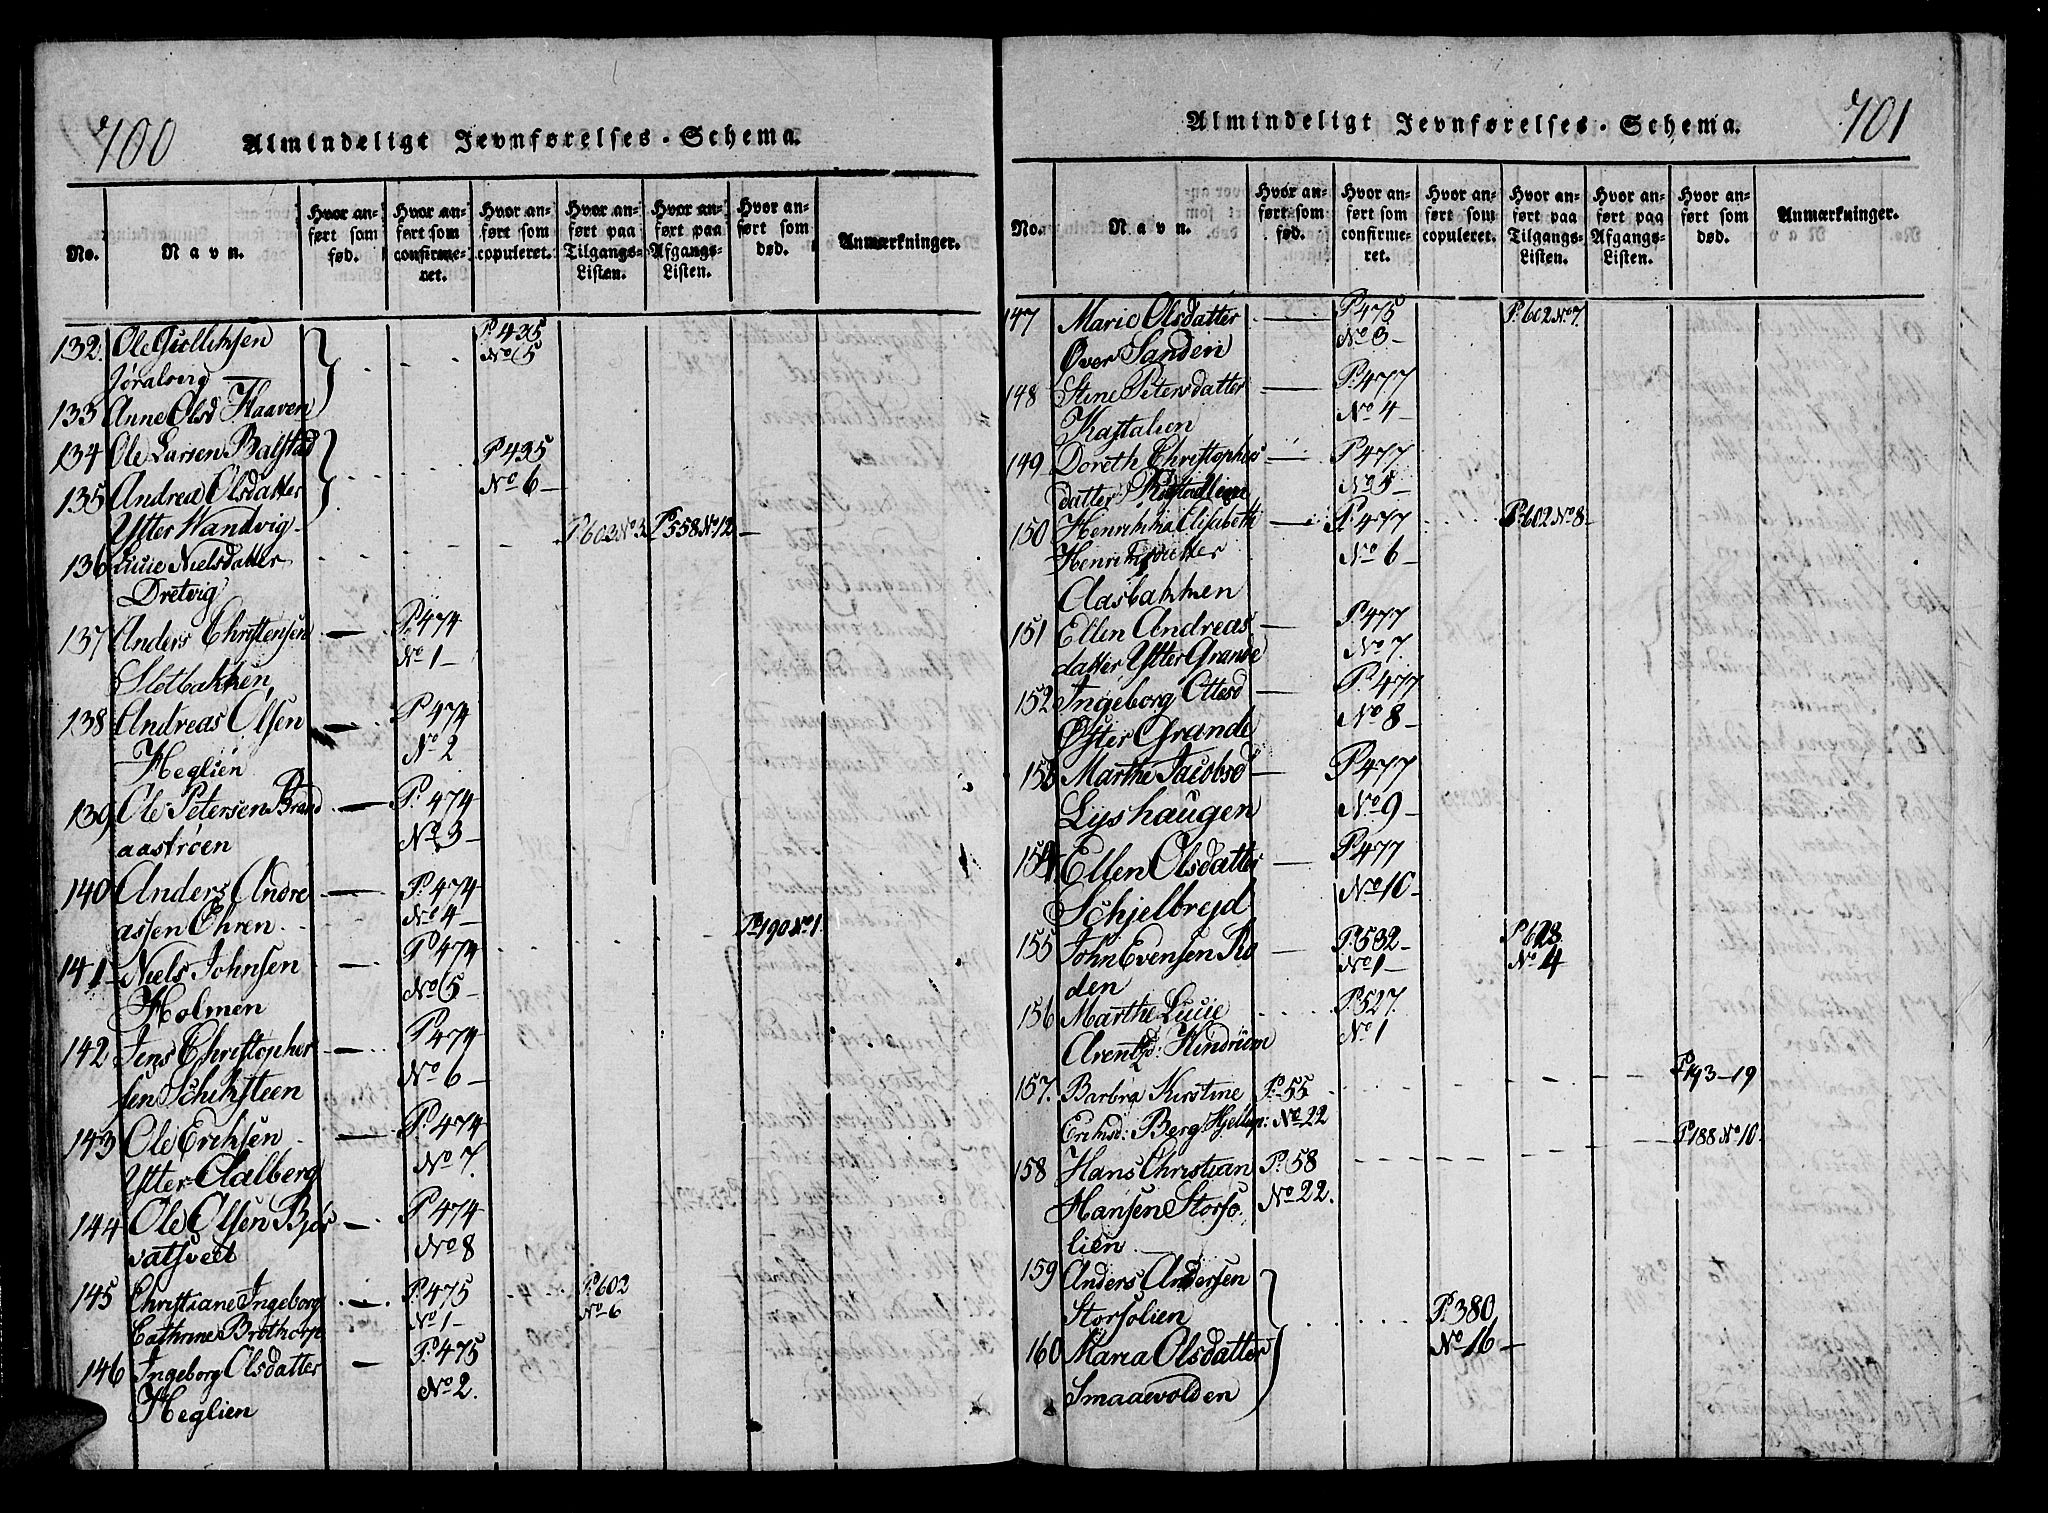 700
Almindeligt Jevnførelses-Schema.
No.
Navn.
Hvor anført som fød.
Hvor anført som confirmeret.
Hvor anført som copuleret.
Hvor anført paa Tilgangs-Listen.
Hvor anført paa Afgangs-Listen.
Hvor anført som død.
Anmærkninger.
132. Ole Gullichsen P. 435
Jøralsvig No 5
133 Anne Olsd Haaven
134 Ole Larsen Balstad P. 435
135 Andrea Olsdatter No 6 –
Ytter Wandvig P. 558 No 12 –
136 Lucie Nielsdatter
Dretvig
137 Anders Christensen – P. 474
Sletbakken No 1 –
138 Andreas Olsen – P. 474
Heglien No 2
139 Ole Petersen Brand – P. 474
aastrøen No 3 –
140 Anders Andre – P. 474
assen Ehren No 4 – P. 190 No 1
141 – Niels Johnsen – P. 474
Holmen No 5 –
142 Jens Christopher – P. 474
sen Schihsteen No 6 –
143 Ole Erichsen – P. 474
Ytter Aalberg No 7
144 Ole Olsen Bjør – P. 474
vatsveet No 8
145 Christiane Ingeborg – P. 475 P. 602
Cathrine Brothorp No 1 – No 6
146 Ingeborg Olsdatter – P. 475
Heglien No 2.
701
Almindeligt Jevnførelses-Schema.
No.
Navn.
Hvor anført som fød.
Hvor anført som confirmeret.
Hvor anført som copuleret.
Hvor anført paa Tilgangs-Listen.
Hvor anført paa Afgangs-Listen.
Hvor anført som død.
Anmærkninger.
147 Marie Olsdatter – P. 475 P. 602 No 7.
Over Sanden No 3 –
148 Stene Petersdatter – P. 477
Kastalien No 4 –
149 Doreth Christophers – P. 477
datter No 5 –
150 Henrichha Elisabeth – P. 477 P. 602 No 8 –
Henrichsdatter No 6 –
Aasbakken
151 Ellen Andreas – P. 477
datter Ytter Grande No 7.
152 Ingeborg Ottesd – P. 477
Øfter Grande No 8 –
153 Marthe Jacobsd – P. 477
Lyshaugen No 9 –
154 Ellen Olsdatter – P. 477
Schjelbreid No 10 –
155 John Evensen Ro – P. 532 – P. 628
den No 1 – No 4
156 Marthe Lucie P. 527.
Arentzd: Hindrum No 1
P 193 – 19
157. Barbra Kirstine P. 55
Erichsd: Berg Hjellup: No 22
P. 188 No 10
158 Hans Christian P. 58
Hansen Storso No 22.
lien
159 Anders Andersen
Storsolien P. 380
160 Maria Olsdatter No 16 –
Smaavolden